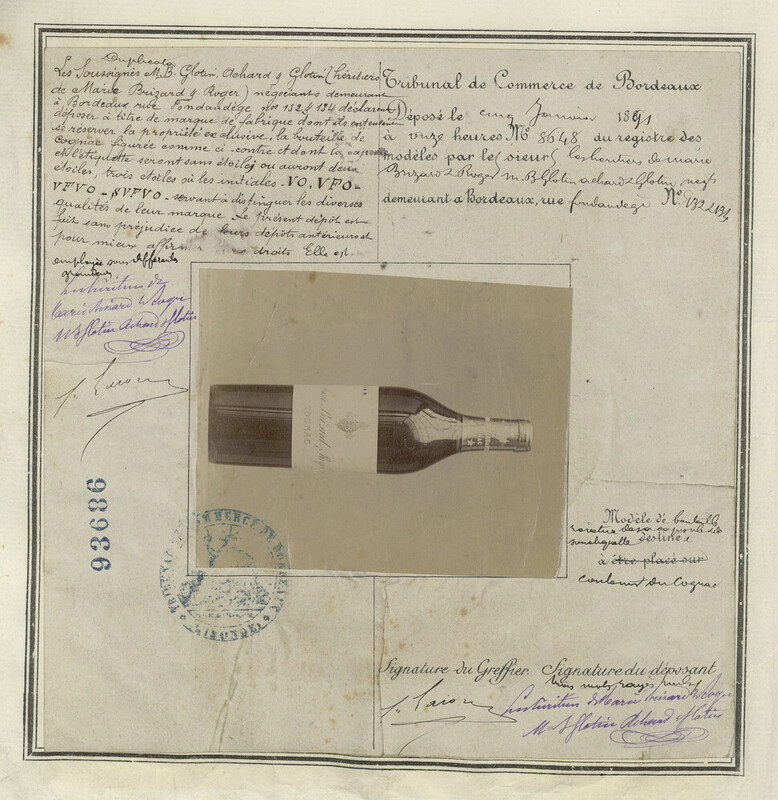 Duplicata
Les Soussignés M. B. Glotin, Achard & Glotin (héritiers
de Marie Brizard & Roger) négociants demeurant
à Bordeaux rue Fondaudège nos 132 & 134 déclarent
déposer à titre de marque de fabrique dont ils entendent
se réserver la propriété exclusive, la bouteille de
Cognac figurée comme ci-contre et dont la capsule
et l'étiquette seront sans étoiles ou auront deux
étoiles, trois étoiles où les initiales VO, VFO-
VFVO - SVFVO - servant à distinguer les diverses
qualités de leur marque. Le présent dépôt est
fait sans préjudice de leurs dépôts antérieurs et
pour mieux droits Elle est
employée sous différentes
grandeurs
Tribunal de Commerce de Bordeaux
Déposé le cinq Janvier 1891
à onze heures No 8648 du registre des
modèles par les sieurs les héritiers de marie
Brizard & Roger M. B. Glotin achard & Glotin négts
demeurant à Bordeaux, rue fondaudège No 132 & 134
Les héritiers de
Marie Brizard & Roger
M B Glotin Achard & Glotin
COGNAC
93686
TRIBUNAL DE COMMERCE DE BORDEAUX
(GIRONDE)
Modèle de bouteille
destinée
à être placé sur
contenir du Cognac
Signature du Greffier. Signature du déposant
trois mots rayés nuls
Les héritiers de Marie Brizard & Roger
M B Glotin Achard & Glotin